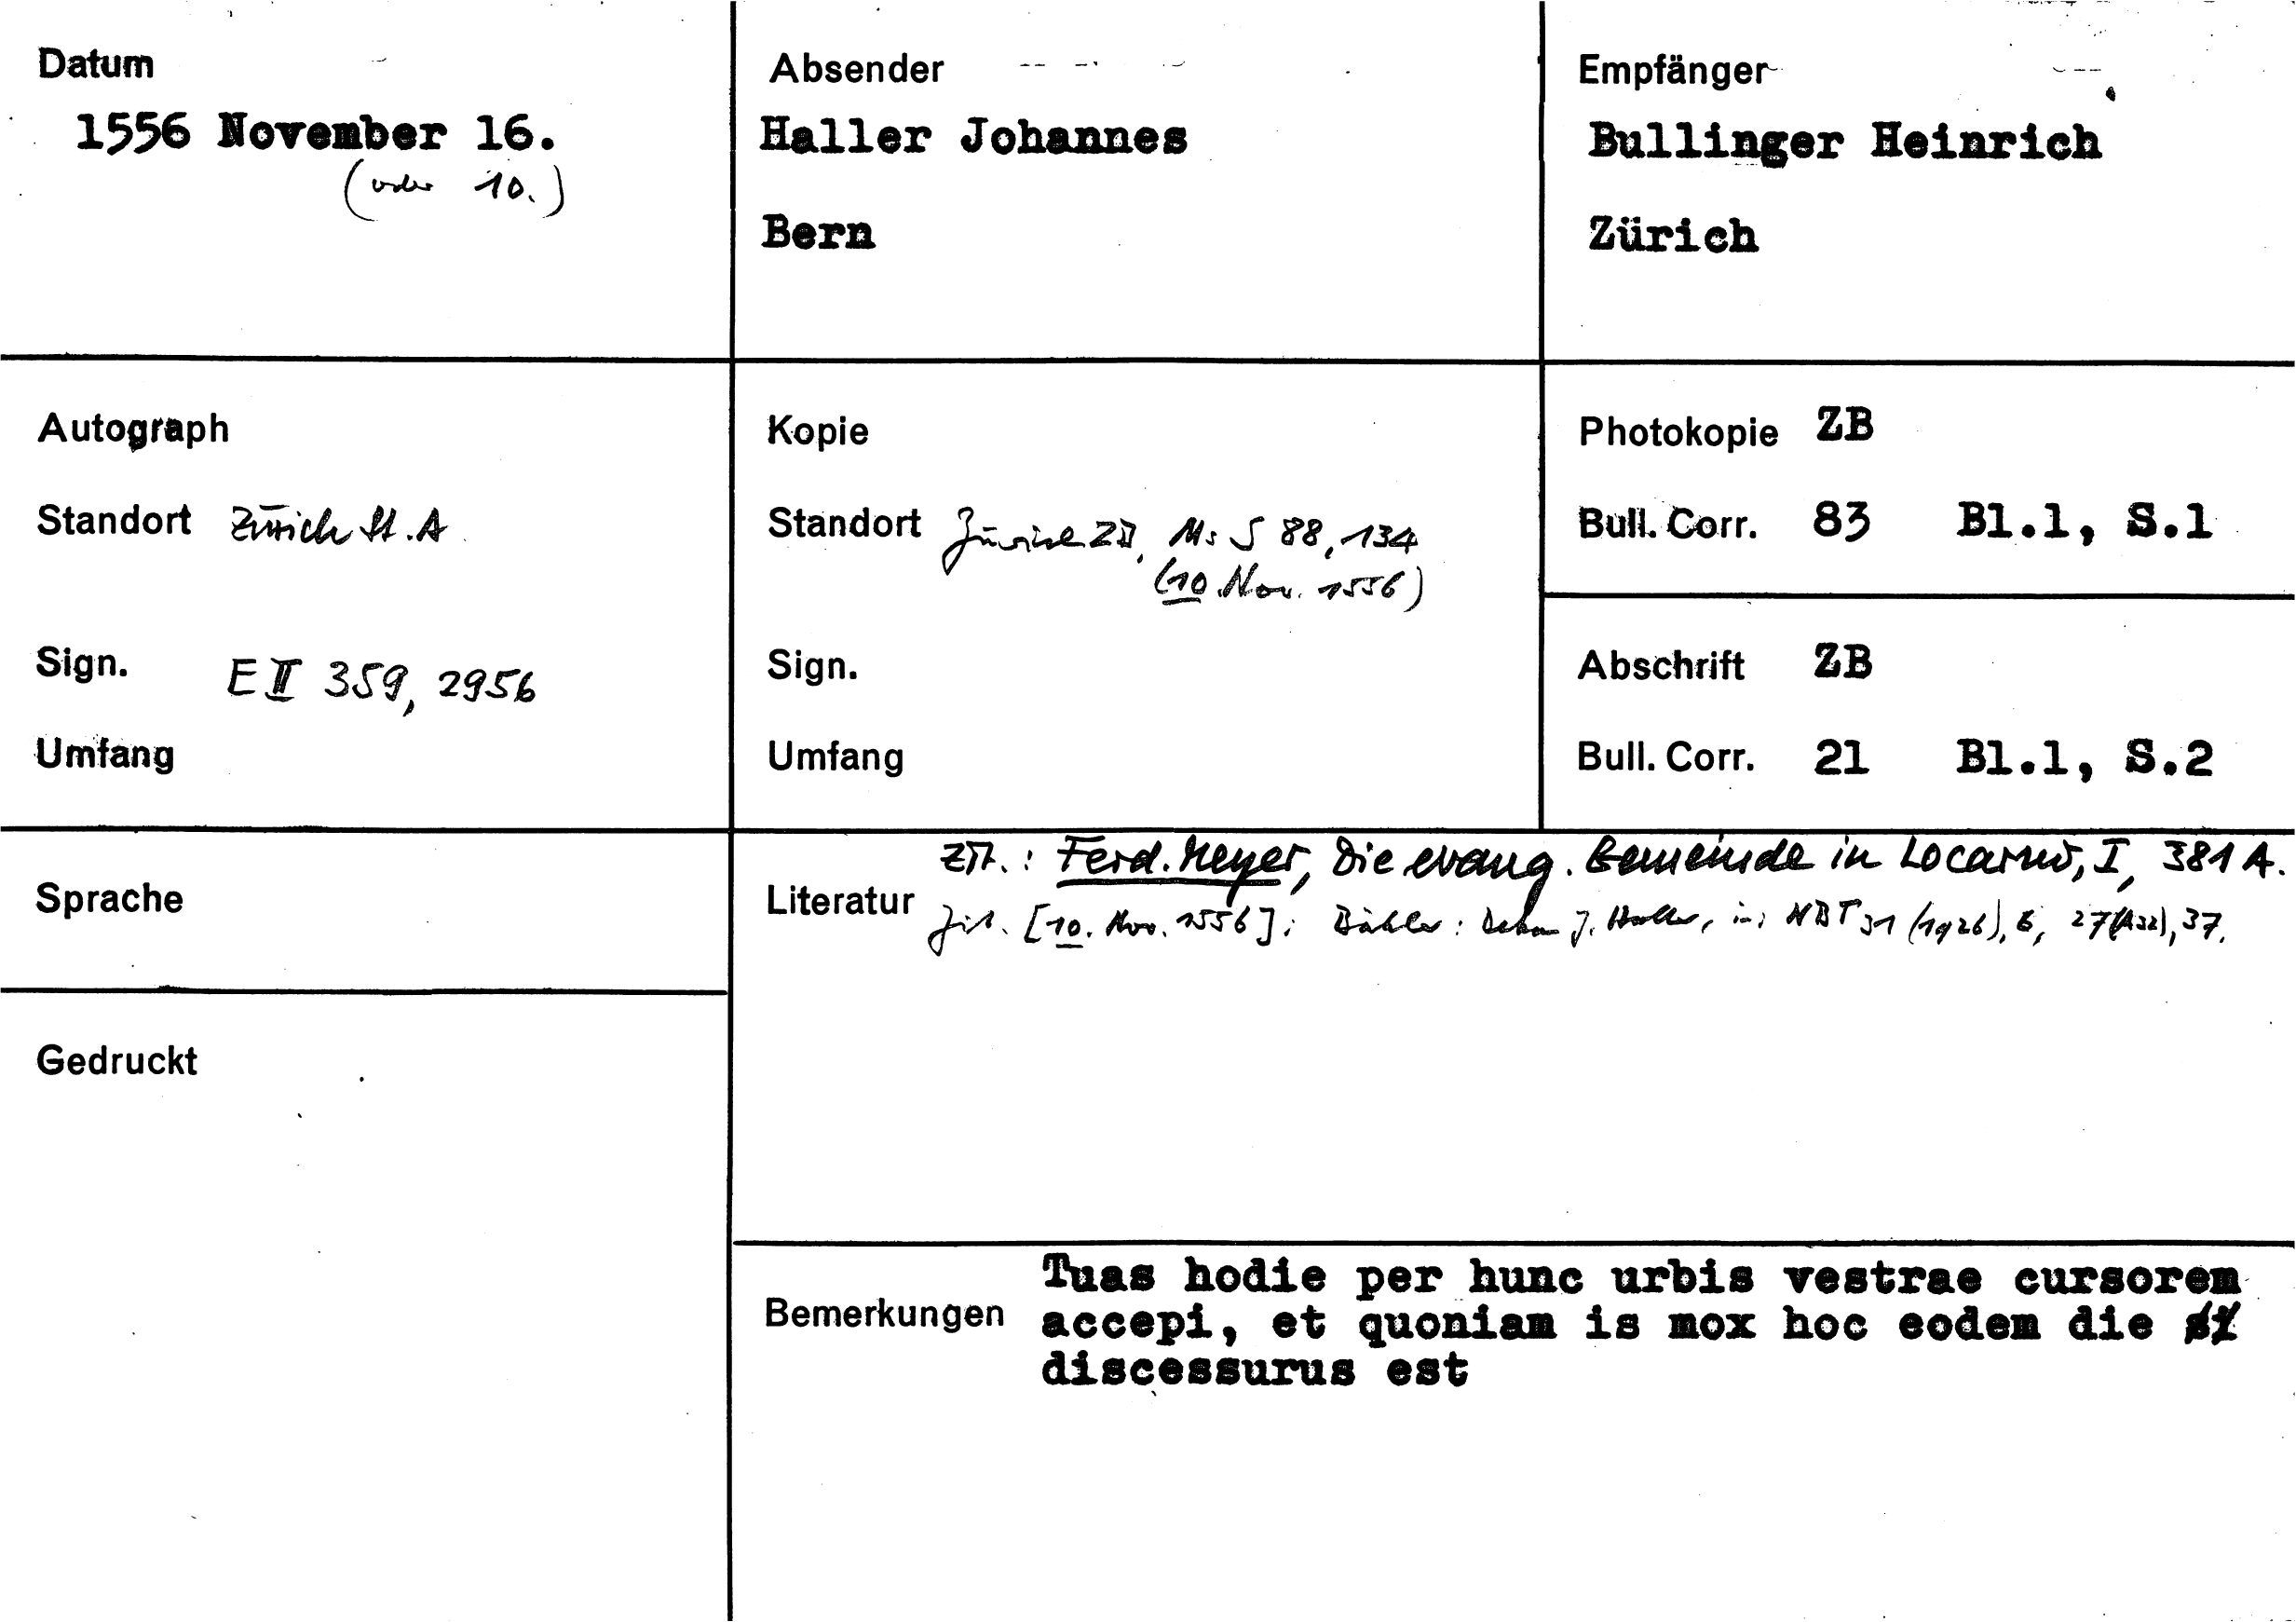 Datum
1556 November 16.
(oder 10.)
Absender
Haller Johannes
Bern
Empfänger
Bullinger Heinrich
Zürich
Autograph
Standort Zürich St.A
Sign. E II 359, 2956
Umfang
Kopie
Standort Zürich ZB, Ms S 88, 134
(10. Nov. 1556)
Sign.
Umfang
Photokopie ZB
Bull. Corr. 83 Bl.1, S.1
Abschrift ZB
Bull. Corr. 21 Bl.1, S.2
Sprache
Gedruckt
Zit.: Ferd. Meyer, Die evang. Gemeinde in Locarno, I, 381 A.
Literatur Zit. [10. Nov. 1556]: Bähler: Dekan J. Haller, in: NBT 31 (1926), 6, 27(A32), 37.
Bemerkungen
Tuas hodie per hunc urbis vestrae cursorem
accepi, et quoniam is mox hoc eodem die
discessurus est